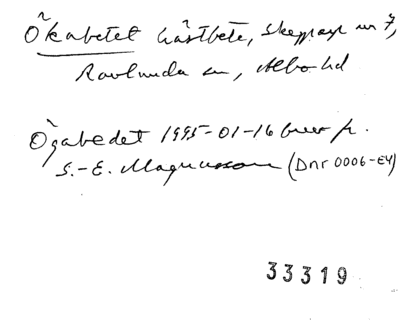 Ökabetet hästbete, Skepparp nr 7,
Ravlunda sn, Albo hd
Ögabedet 1995-01-16 brev fr.
S.-E. Magnusson (Dnr 0006-EY)
33319